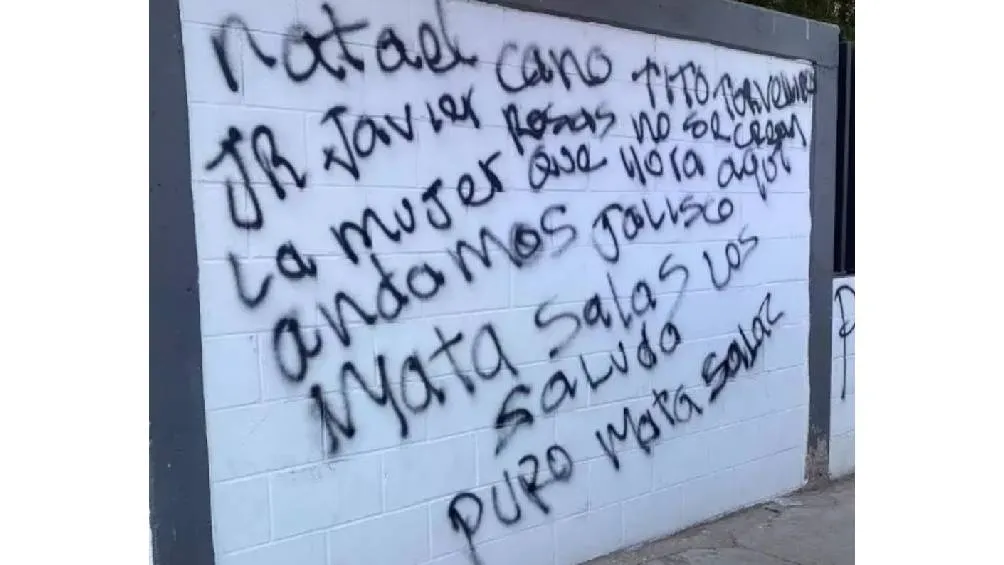 natael cano TITO TORVELLINO
JR Javier Rosas no se crean
La mujer que llora aqui
andamos Jalisco
Mata salas los
saluda
puro mata salaz
P